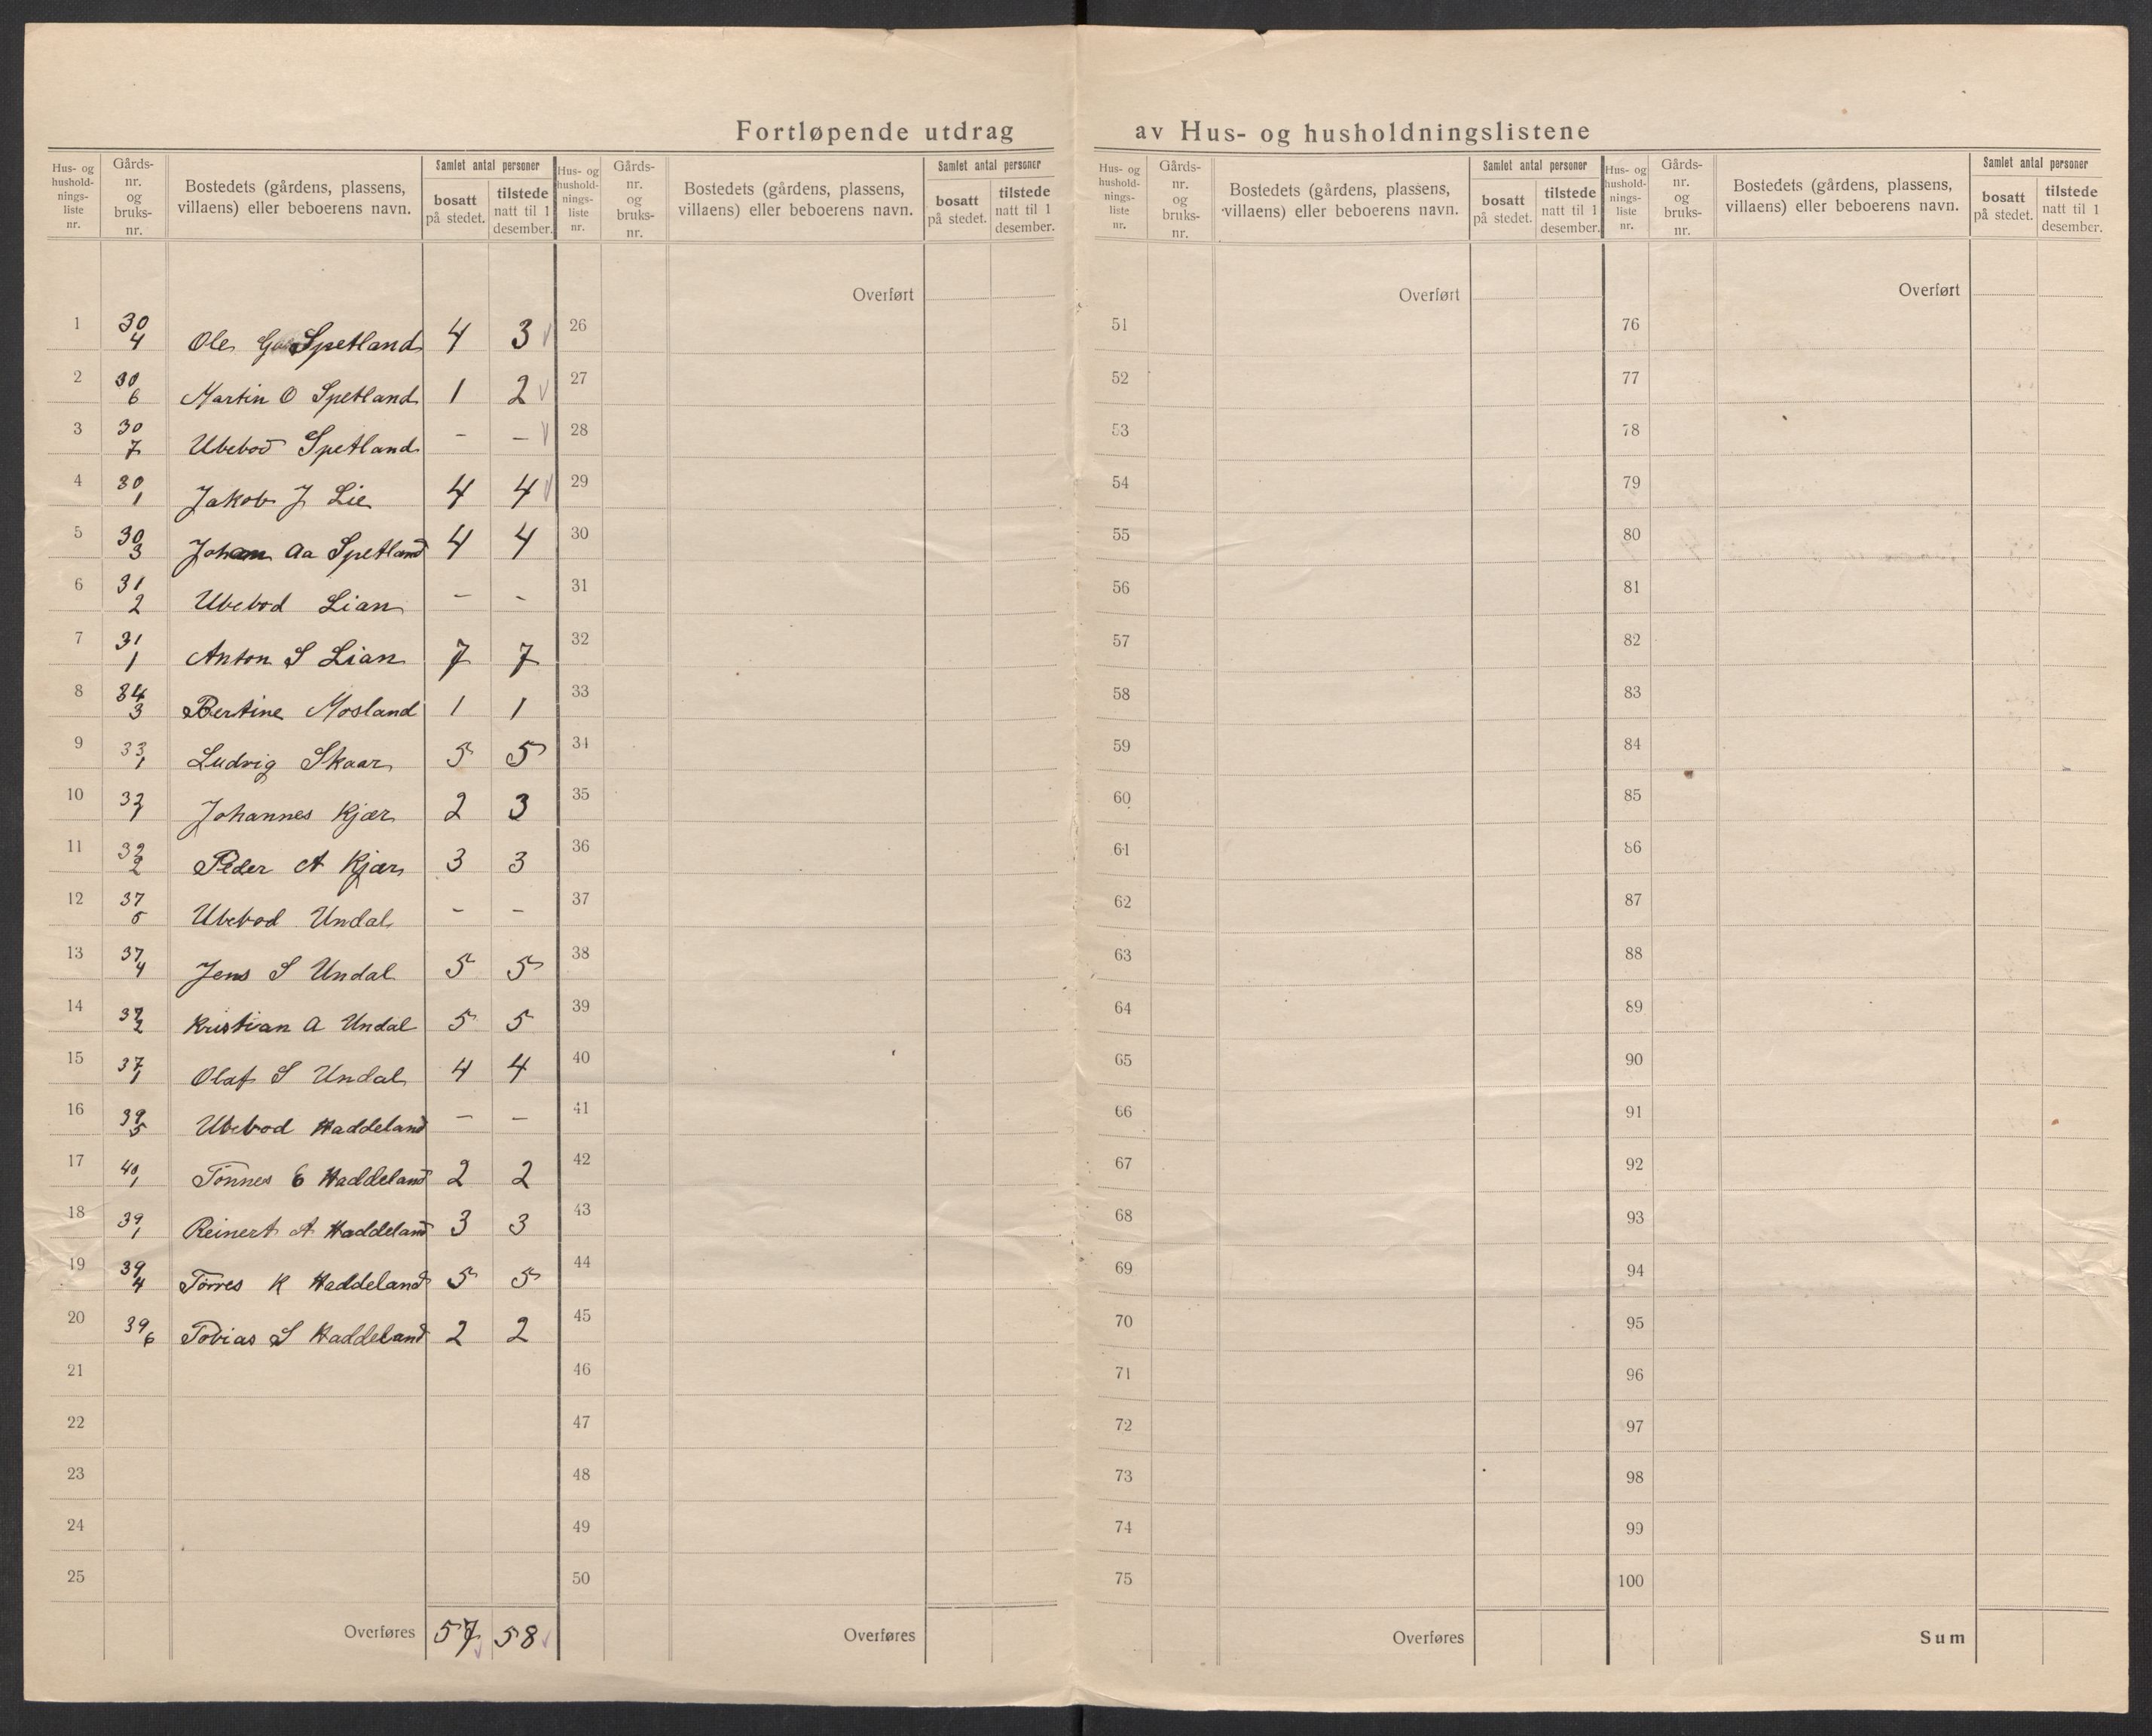 Fortløpende utdrag av Hus- og husholdningslistene
Hus- og hushold-nings-liste nr. | Gårds-nr. og bruks-nr. | Bostedets (gårdens, plassens, villaens) eller beboerens navn. | Samlet antal personer | bosatt på stedet. | tilstede natt til 1 desember.
Hus- og hushold-nings-liste nr. | Gårds-nr. og bruks-nr. | Bostedets (gårdens, plassens, villaens) eller beboerens navn. | Samlet antal personer | bosatt på stedet. | tilstede natt til 1 desember.
Hus- og hushold-nings-liste nr. | Gårds-nr. og bruks-nr. | Bostedets (gårdens, plassens, villaens) eller beboerens navn. | Samlet antal personer | bosatt på stedet. | tilstede natt til 1 desember.
Hus- og hushold-nings-liste nr. | Gårds-nr. og bruks-nr. | Bostedets (gårdens, plassens, villaens) eller beboerens navn. | Samlet antal personer | bosatt på stedet. | tilstede natt til 1 desember.
Overført Overført Overført
1 30/4 Ole Spetland 4 3 26 51 76
2 30/6 Martin O Spetland 1 2 27 52 77
3 30/7 Ubebod Spetland – – 28 53 78
4 30/1 Jakob J Lie 4 4 29 54 79
5 30/3 Johan Aa Spetland 4 4 30 55 80
6 31/2 Ubebod Lian – – 31 56 81
7 31/1 Anton S Lian 7 7 32 57 82
8 34/3 Bertine Mosland 1 1 33 58 83
9 33/1 Ludvig Skaar 5 5 34 59 84
10 32/1 Johannes Kjær 2 3 35 60 85
11 32/2 Peder A Kjær 3 3 36 61 86
12 37/5 Ubebod Undal – – 37 62 87
13 37/4 Jens S Undal 5 5 38 63 88
14 37/2 Kristian A Undal 5 5 39 64 89
15 37/1 Olaf S Undal 4 4 40 65 90
16 39/5 Ubebod Haddeland – – 41 66 91
17 40/1 Tønnes E Haddeland 2 2 42 67 92
18 39/1 Reinert A Haddeland 3 3 43 68 93
19 39/4 Torres K Haddeland 5 5 44 69 94
20 39/6 Tobias S Haddeland 2 2 45 70 95
21 46 71 96
22 47 72 97
23 48 73 98
24 49 74 99
25 50 75 100
Overføres 57 58 Overføres Overføres Sum